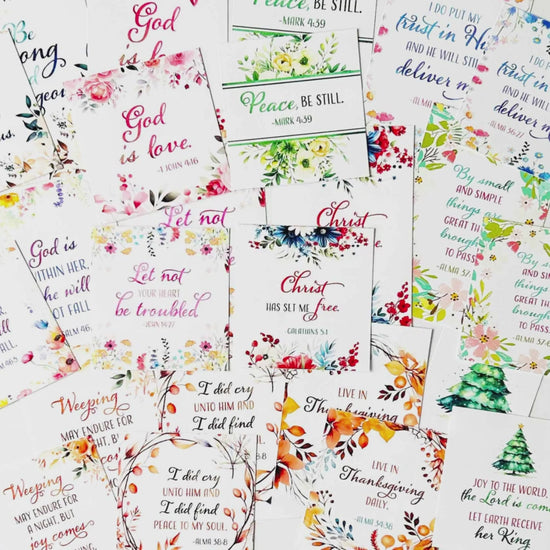 Be
ong
d
geous.
God
is love.
God
is love.
-1 JOHN 4:16
PEACE, BE STILL.
-MARK 4:39
Peace, BE STILL.
-MARK 4:39
I DO PUT MY
trust in Him
AND HE WILL STILL
deliver me
I DO PUT MY
trust in H
AND HE WILL STILL
deliver m
-ALMA 36:27
By small
AND SIMPLE
things are
GREAT TH
brough
TO PASS
-ALMA 37:
By small
AND SIMPLE
things are
GREAT TH
brought
TO PASS
-ALMA 37:6
God is
WITHIN HER,
he will
NOT FALL
-PSALM 46:5
Let not
Let not
YOUR HEART
be troubled
-JOHN 14:27
Christ
Christ
HAS SET ME free.
GALATIANS 5:1
Weeping
MAY ENDURE FOR
A NIGHT, B
joy co
Weeping
MAY ENDURE FOR
A NIGHT, BUT
joy comes
I did cry
UNTO HIM AND
I did find
I did cry
UNTO HIM AND
I did find
PEACE TO MY SOUL.
-ALMA 38:8
LIVE IN
Thanksgiving
LIVE IN
Thanksgiving
DAILY.
-ALMA 34:38
JOY TO THE WORLD,
the Lord is come
LET EARTH RECEIVE
her King